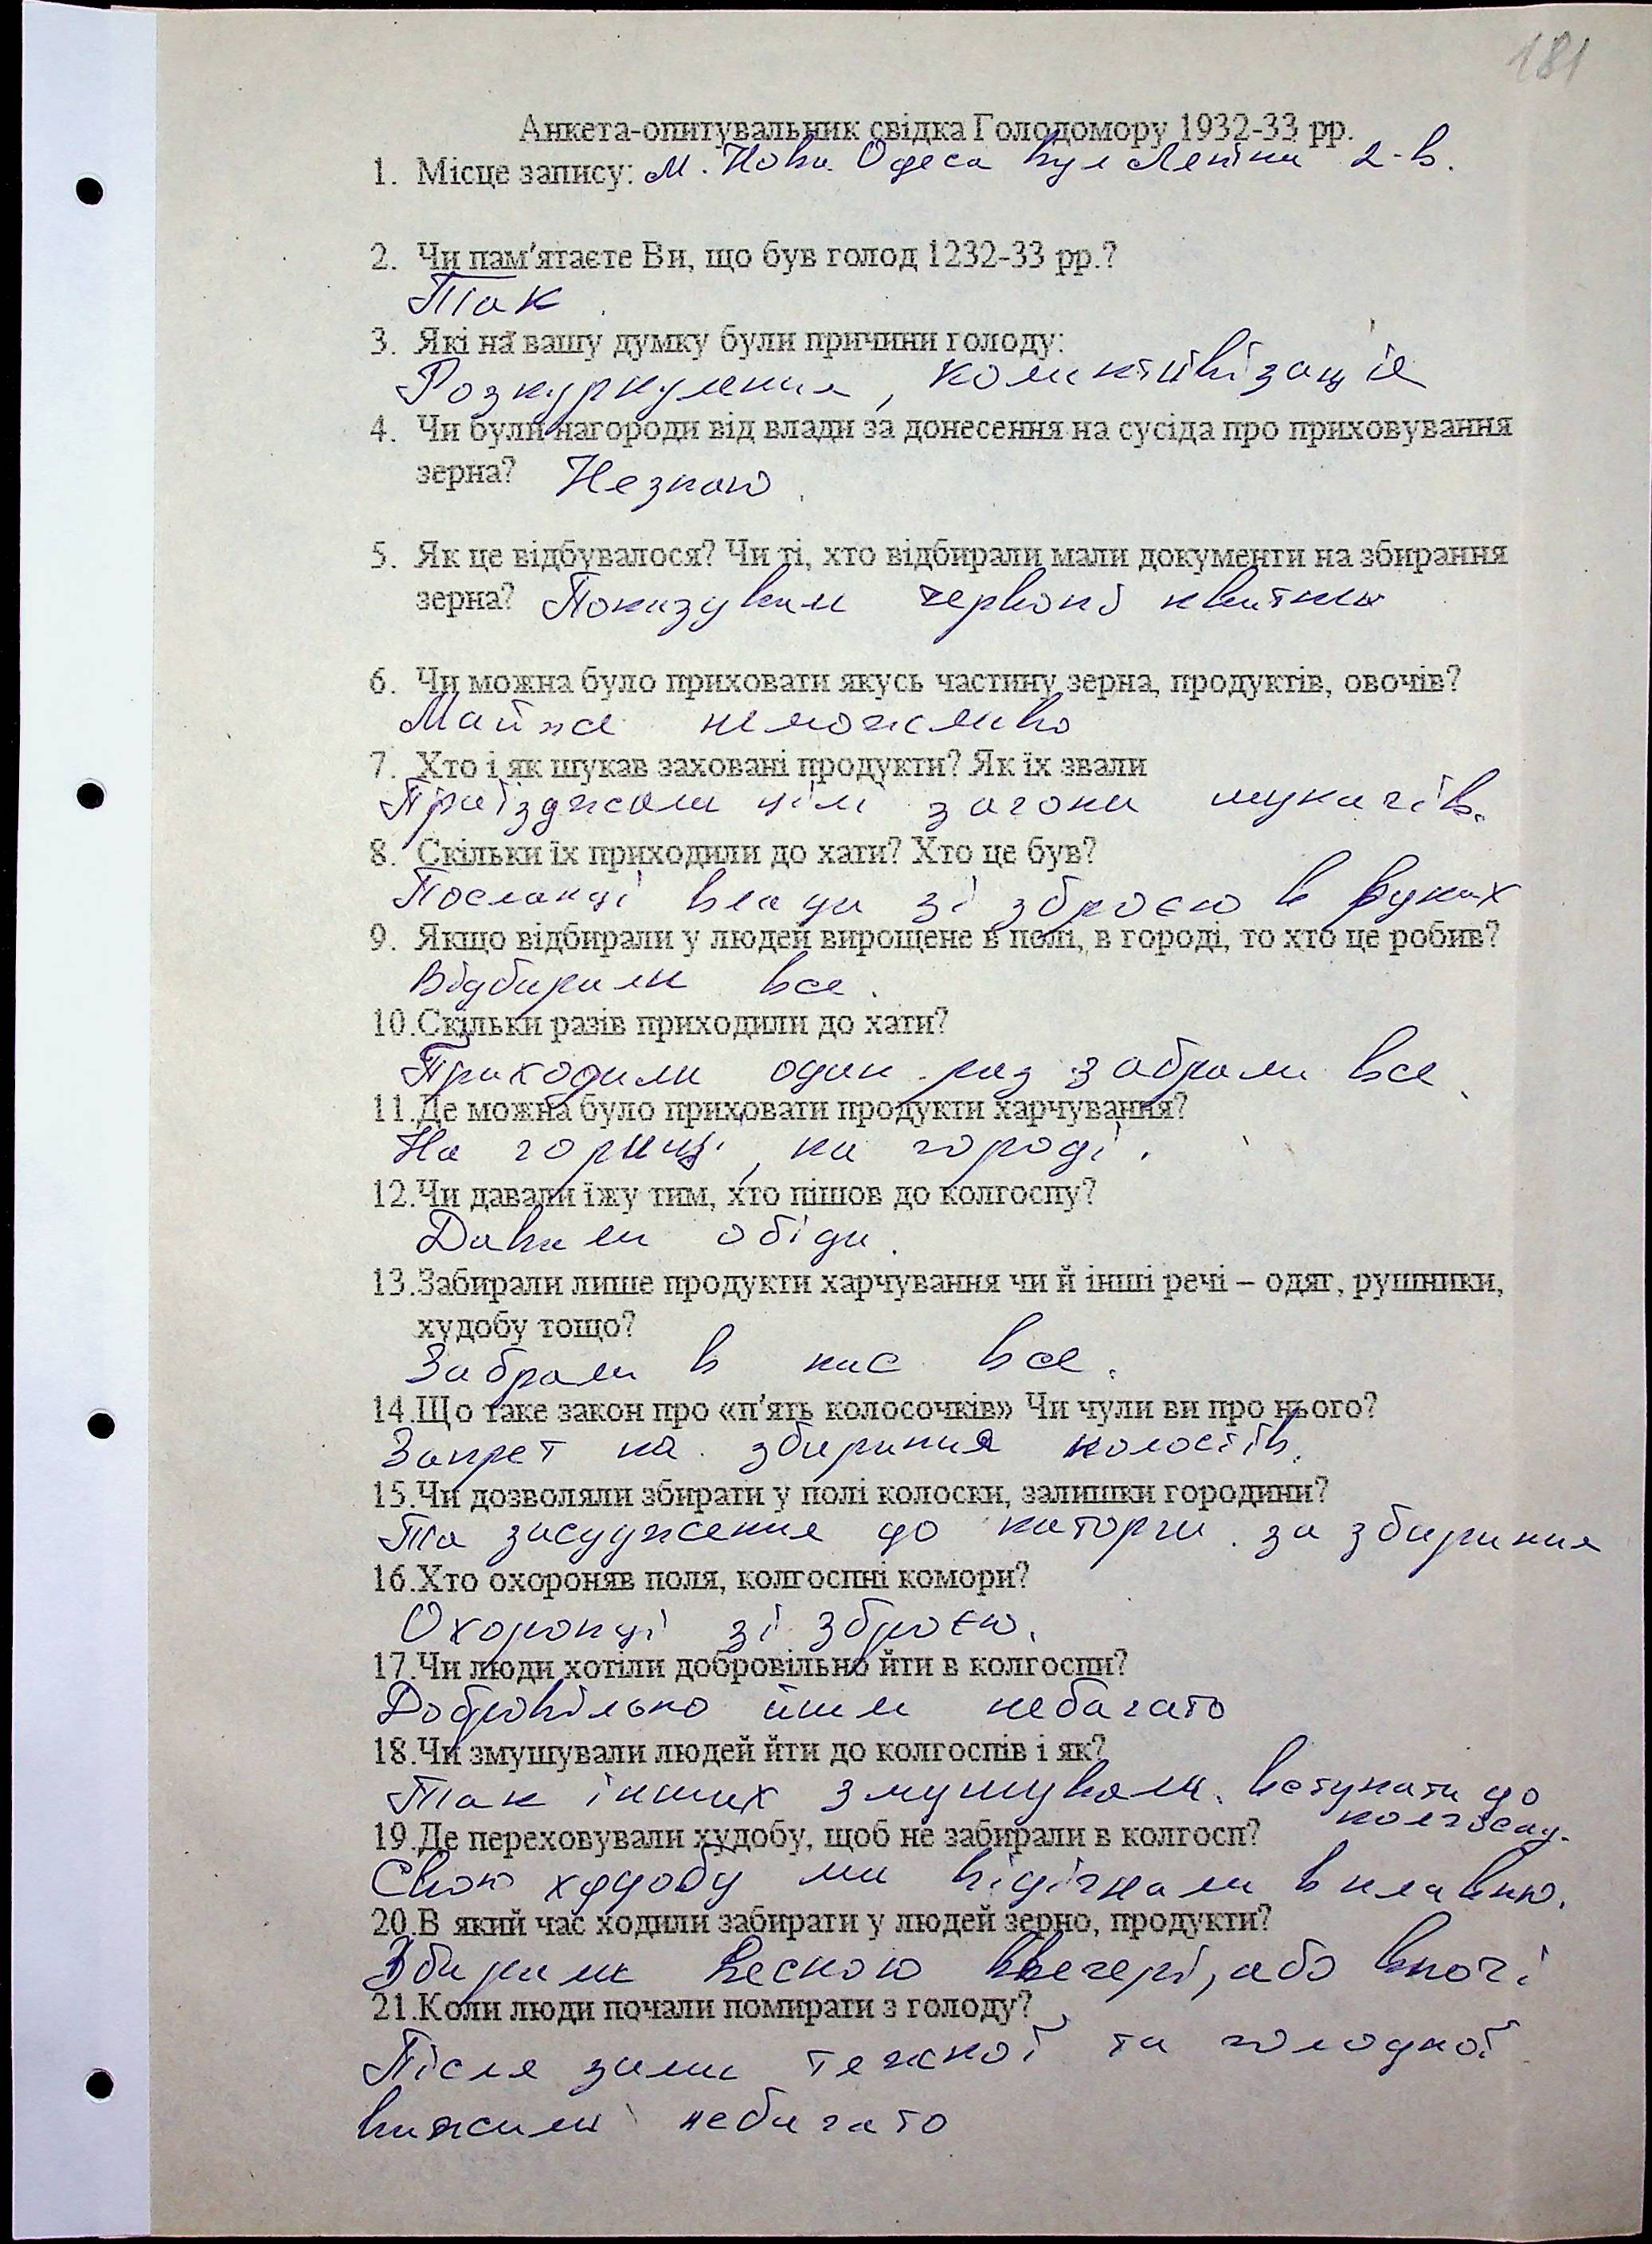 181
Анкета-опитувальник свідка Голодомору 1932-33 рр.
1. Місце запису: М. Нова Одеса вул Леніна 2-в.
2. Чи пам'ятаєте Ви, що був голод 1232-33 рр.?
Так.
3. Які на вашу думку були причини голоду:
Розкуркулення, коликтивізація
4. Чи були нагороди від влади за донесення на сусіда про приховування
зерна? Незнаю.
5. Як це відбувалося? Чи ті, хто відбирали мали документи на збирання
зерна? Показували червоні квитки
6. Чи можна було приховати якусь частину зерна, продуктів, овочів?
Майже неможливо
7. Хто і як шукав заховані продукти? Як їх звали
Приїзджали цілі загони шукачів.
8. Скільки їх приходили до хати? Хто це був?
Посланці влади зі зброєю в руках
9. Якщо відбирали у людей вирощене в полі, в городі, то хто це робив?
Відбирали все.
10.Скільки разів приходили до хати?
Приходили один раз забрали все.
11.Де можна було приховати продукти харчування?
На горищі, на городі.
12.Чи давали їжу тим, хто пішов до колгоспу?
Давали обіди.
13.Забирали лише продукти харчування чи й інші речі – одяг, рушники,
худобу тощо?
Забрали в нас все.
14.Що таке закон про «п'ять колосочків» Чи чули ви про нього?
Запрет на збирання колосків.
15.Чи дозволяли збирати у полі колоски, залишки городини?
Та засудження до каторги за збирання
16.Хто охороняв поля, колгоспні комори?
Охоронці зі зброєю.
17.Чи люди хотіли добровільно йти в колгоспи?
Добровільно йшли небагато
18.Чи змушували людей йти до колгоспів і як?
Так інших змушували вступати до
колгоспу.
19.Де переховували худобу, щоб не забирали в колгосп?
Свою худобу ми відігнали в плавню.
20.В який час ходили забирати у людей зерно, продукти?
Збирали весною ввечері, або вночі
21.Коли люди почали помирати з голоду?
Після зими тяжкої та голодної
вижили небагато